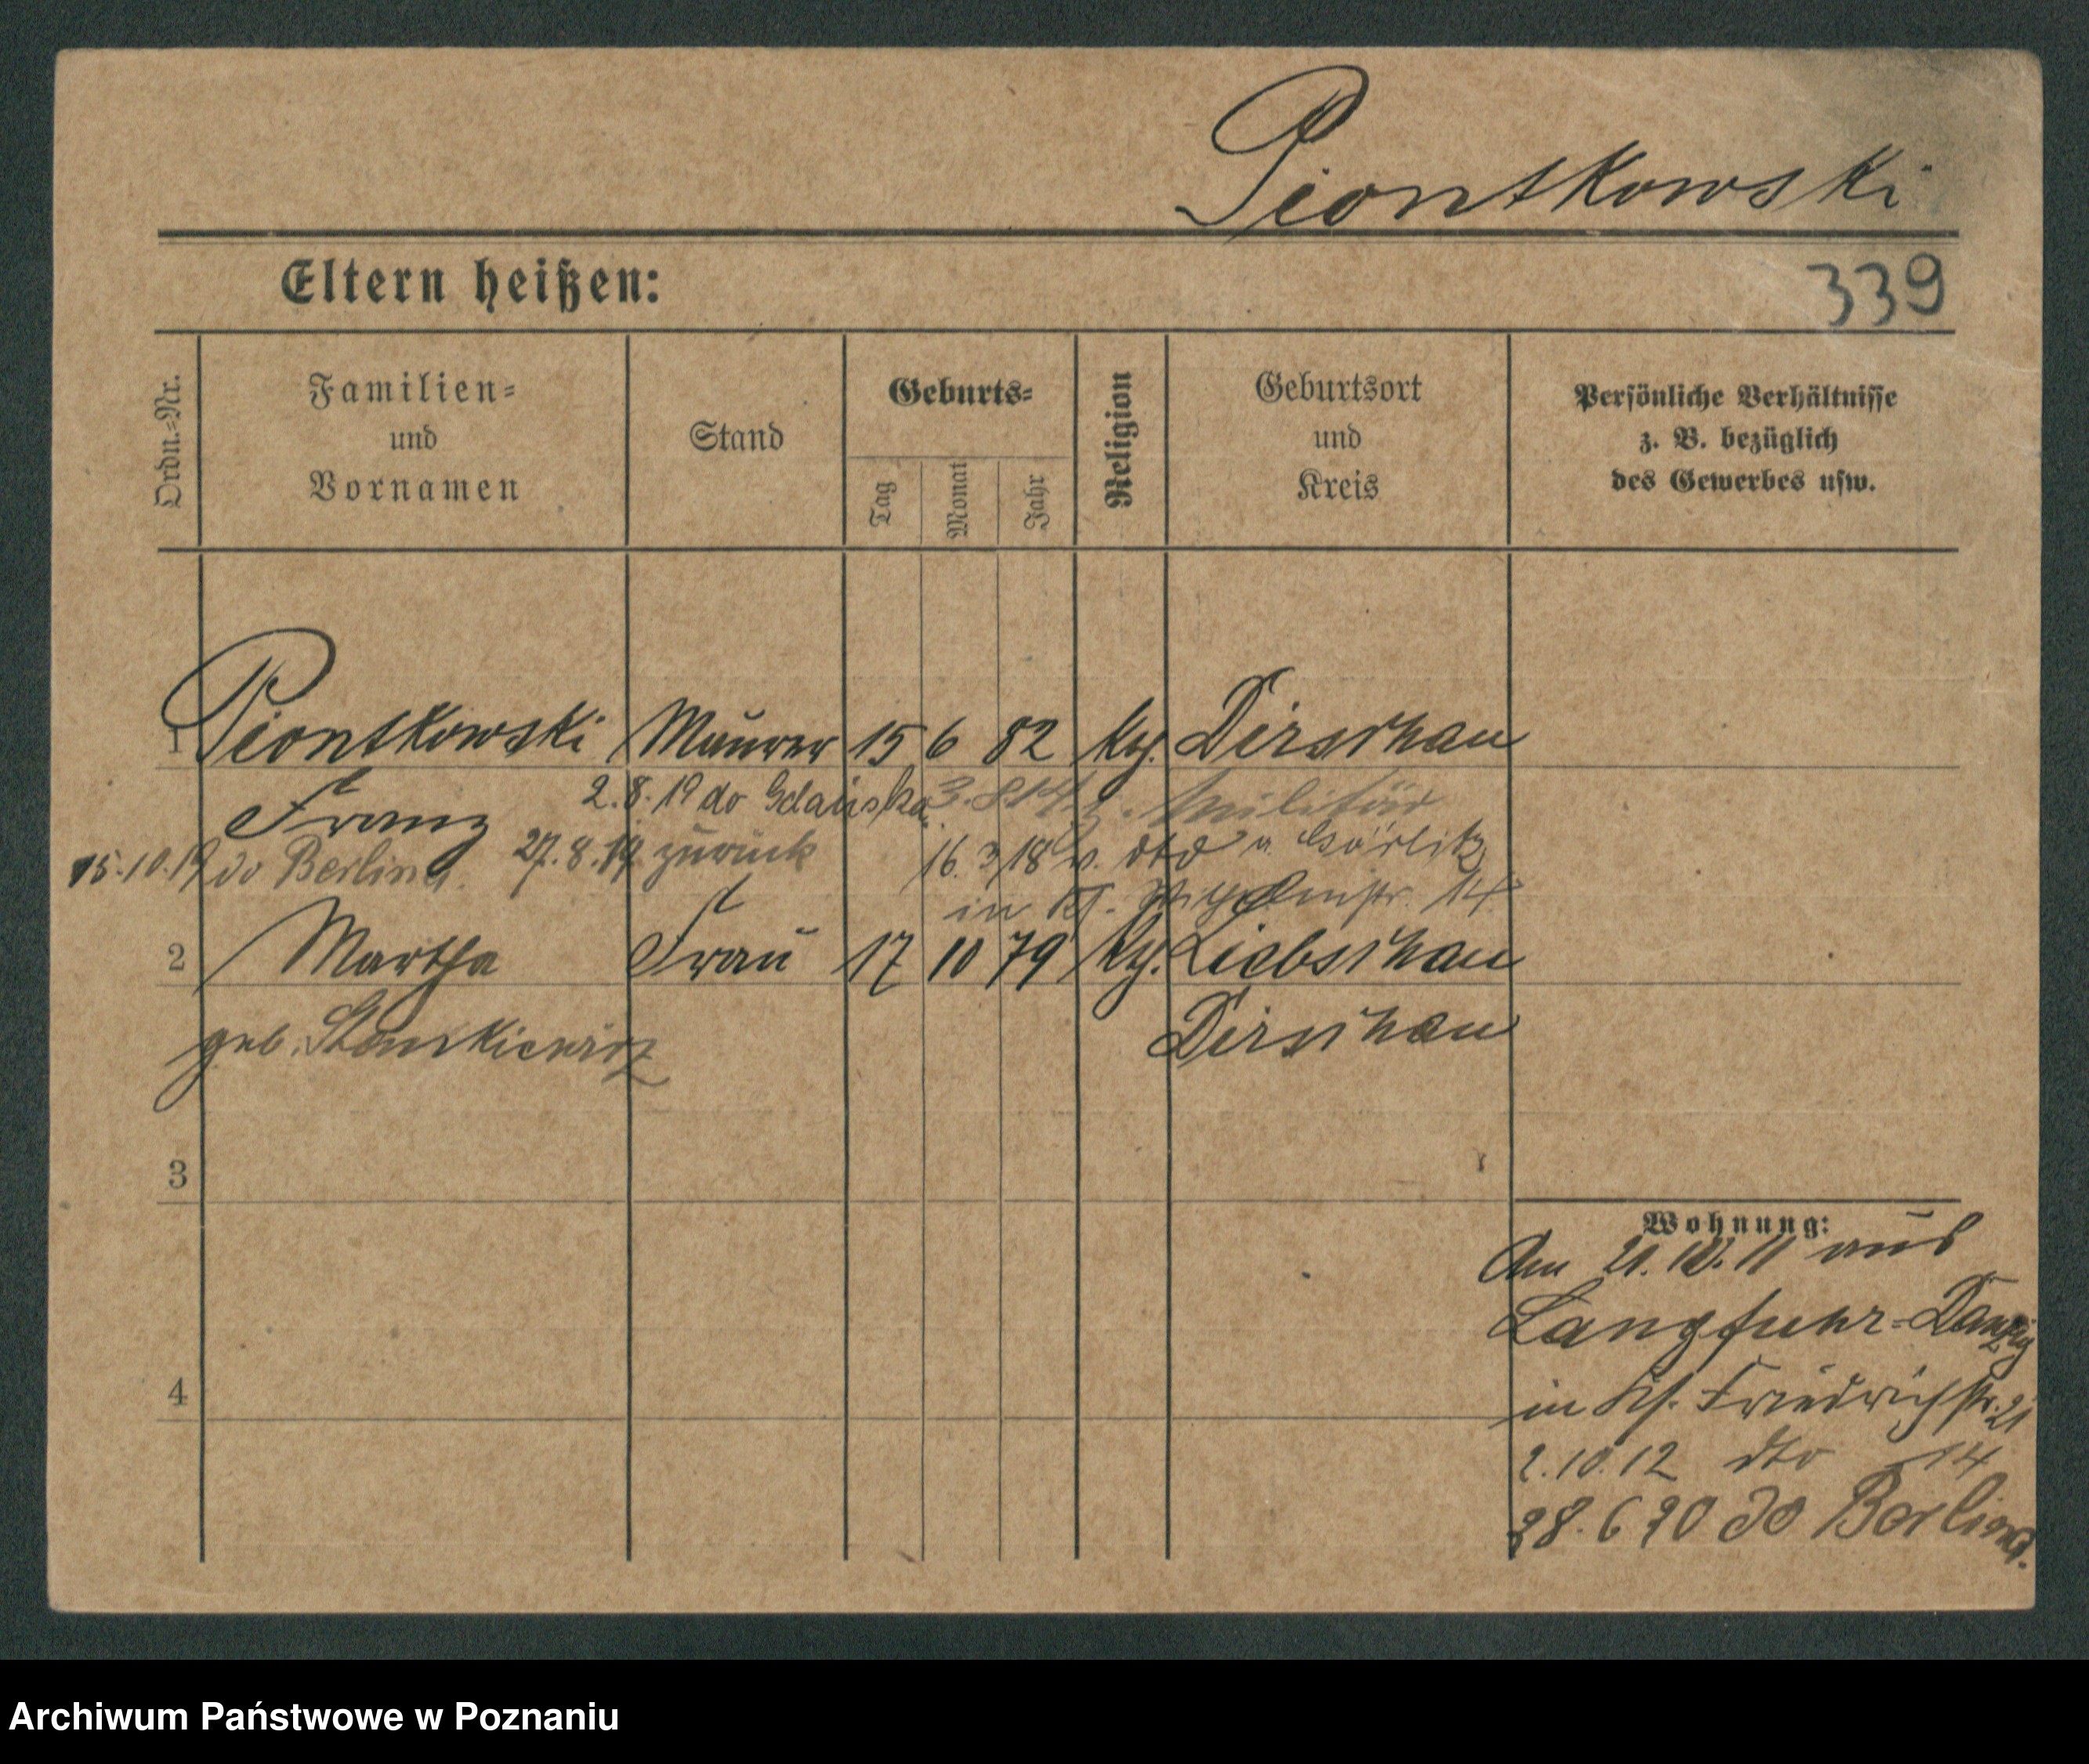 Piontkowski
Eltern heißen:
339
Ordn.-Nr.
Familien-
und
Vornamen
Stand
Geburts-
Tag
Monat
Jahr
Religion
Geburtsort
und
Kreis
Persönliche Verhältnisse
z. B. bezüglich
des Gewerbes usw.
1 Piontkowski Maurer 15 6 82 kg. Dirschau
Franz 2.8.19 do Gdańska 3.8.14 z. Militär
27.8.19 zurück 16.3.18 v. dto n. Görlitz
15.10.19 do Berlina.
in 14
2 Martha Frau 17 10 79 kg. Liebschau
geb. Dirschau
3
4
Wohnung:
Am 21.10.11 aus
Langfuhr-Danzig
in Friedrichstr. 21
2.10.12 dto 14
28.6 20 do Berlina.
Archiwum Państwowe w Poznaniu